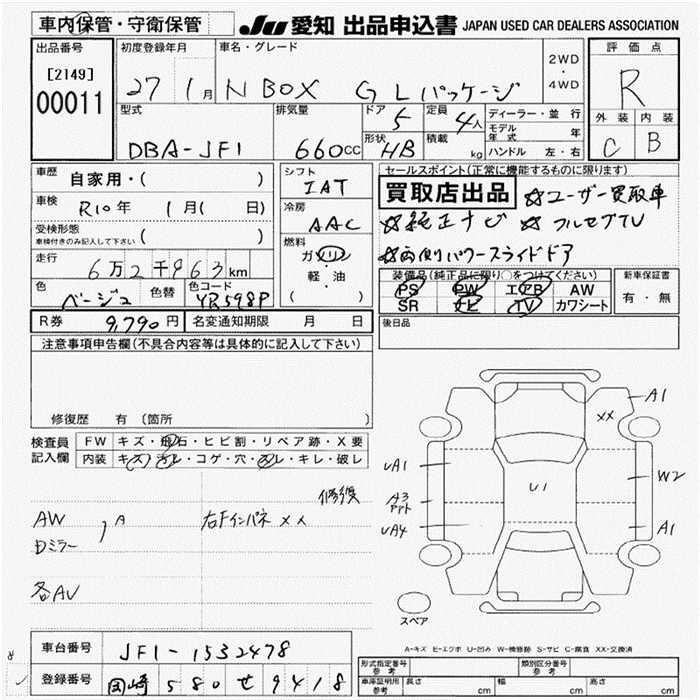 車内保管・守衛保管
JU 愛知 出品申込書 JAPAN USED CAR DEALERS ASSOCIATION
出品番号 [2149] 00011
初度登録年月 27 1月
車名・グレード N BOX G Lパッケージ
2WD ・ 4WD
評価点 R
外装 C 内装 B
型式 DBA-JF1
排気量 660cc
ドア 5 定員 4人
形状 HB 積載 kg
ディーラー・並行
モデル年式 年
ハンドル 左・右
車歴 自家用・( )
車検 R10年 1月( 日)
受検形態 車検付きのみ記入して下さい ( )
走行 6万2千963km
色 ベージュ 色替 色コード YR598P
シフト IAT
冷房 AAC
燃料 ガソリン ・ 軽・油 ( )
セールスポイント(正常に機能するものに限ります)
買取店出品 ☆ユーザー買取車
☆純正ナビ ☆フルセグTV
☆両側パワースライドドア
装備品(純正品に限り○をつけてください)
PS PW エアB AW
SR ナビ TV カワシート
新車保証書 有・無
R券 9,790円 名変通知期限 月 日
後日品
注意事項申告欄(不具合内容等は具体的に記入して下さい)
修復歴 有 〔箇所 〕
検査員記入欄
FW キズ・飛石・ヒビ割・リペア跡・X要
内装 キズ・汚レ・コゲ・穴・スレ・キレ・破レ
修復
AW , A 右Fインパネ XX
Dミラー
各AU
A1
XX
UA1
W2
U1
A3
PPt
UA4
A1
スペア
A-キズ E-エクボ U-凹み W-補修跡 S-サビ C-腐食 XX-交換済
車台番号 JF1-1532478
登録番号 岡崎 580 せ 9418
形式指定番号 参考 類別区分番号 参考
車庫証明用 参考 長さ cm 幅 cm 高さ cm